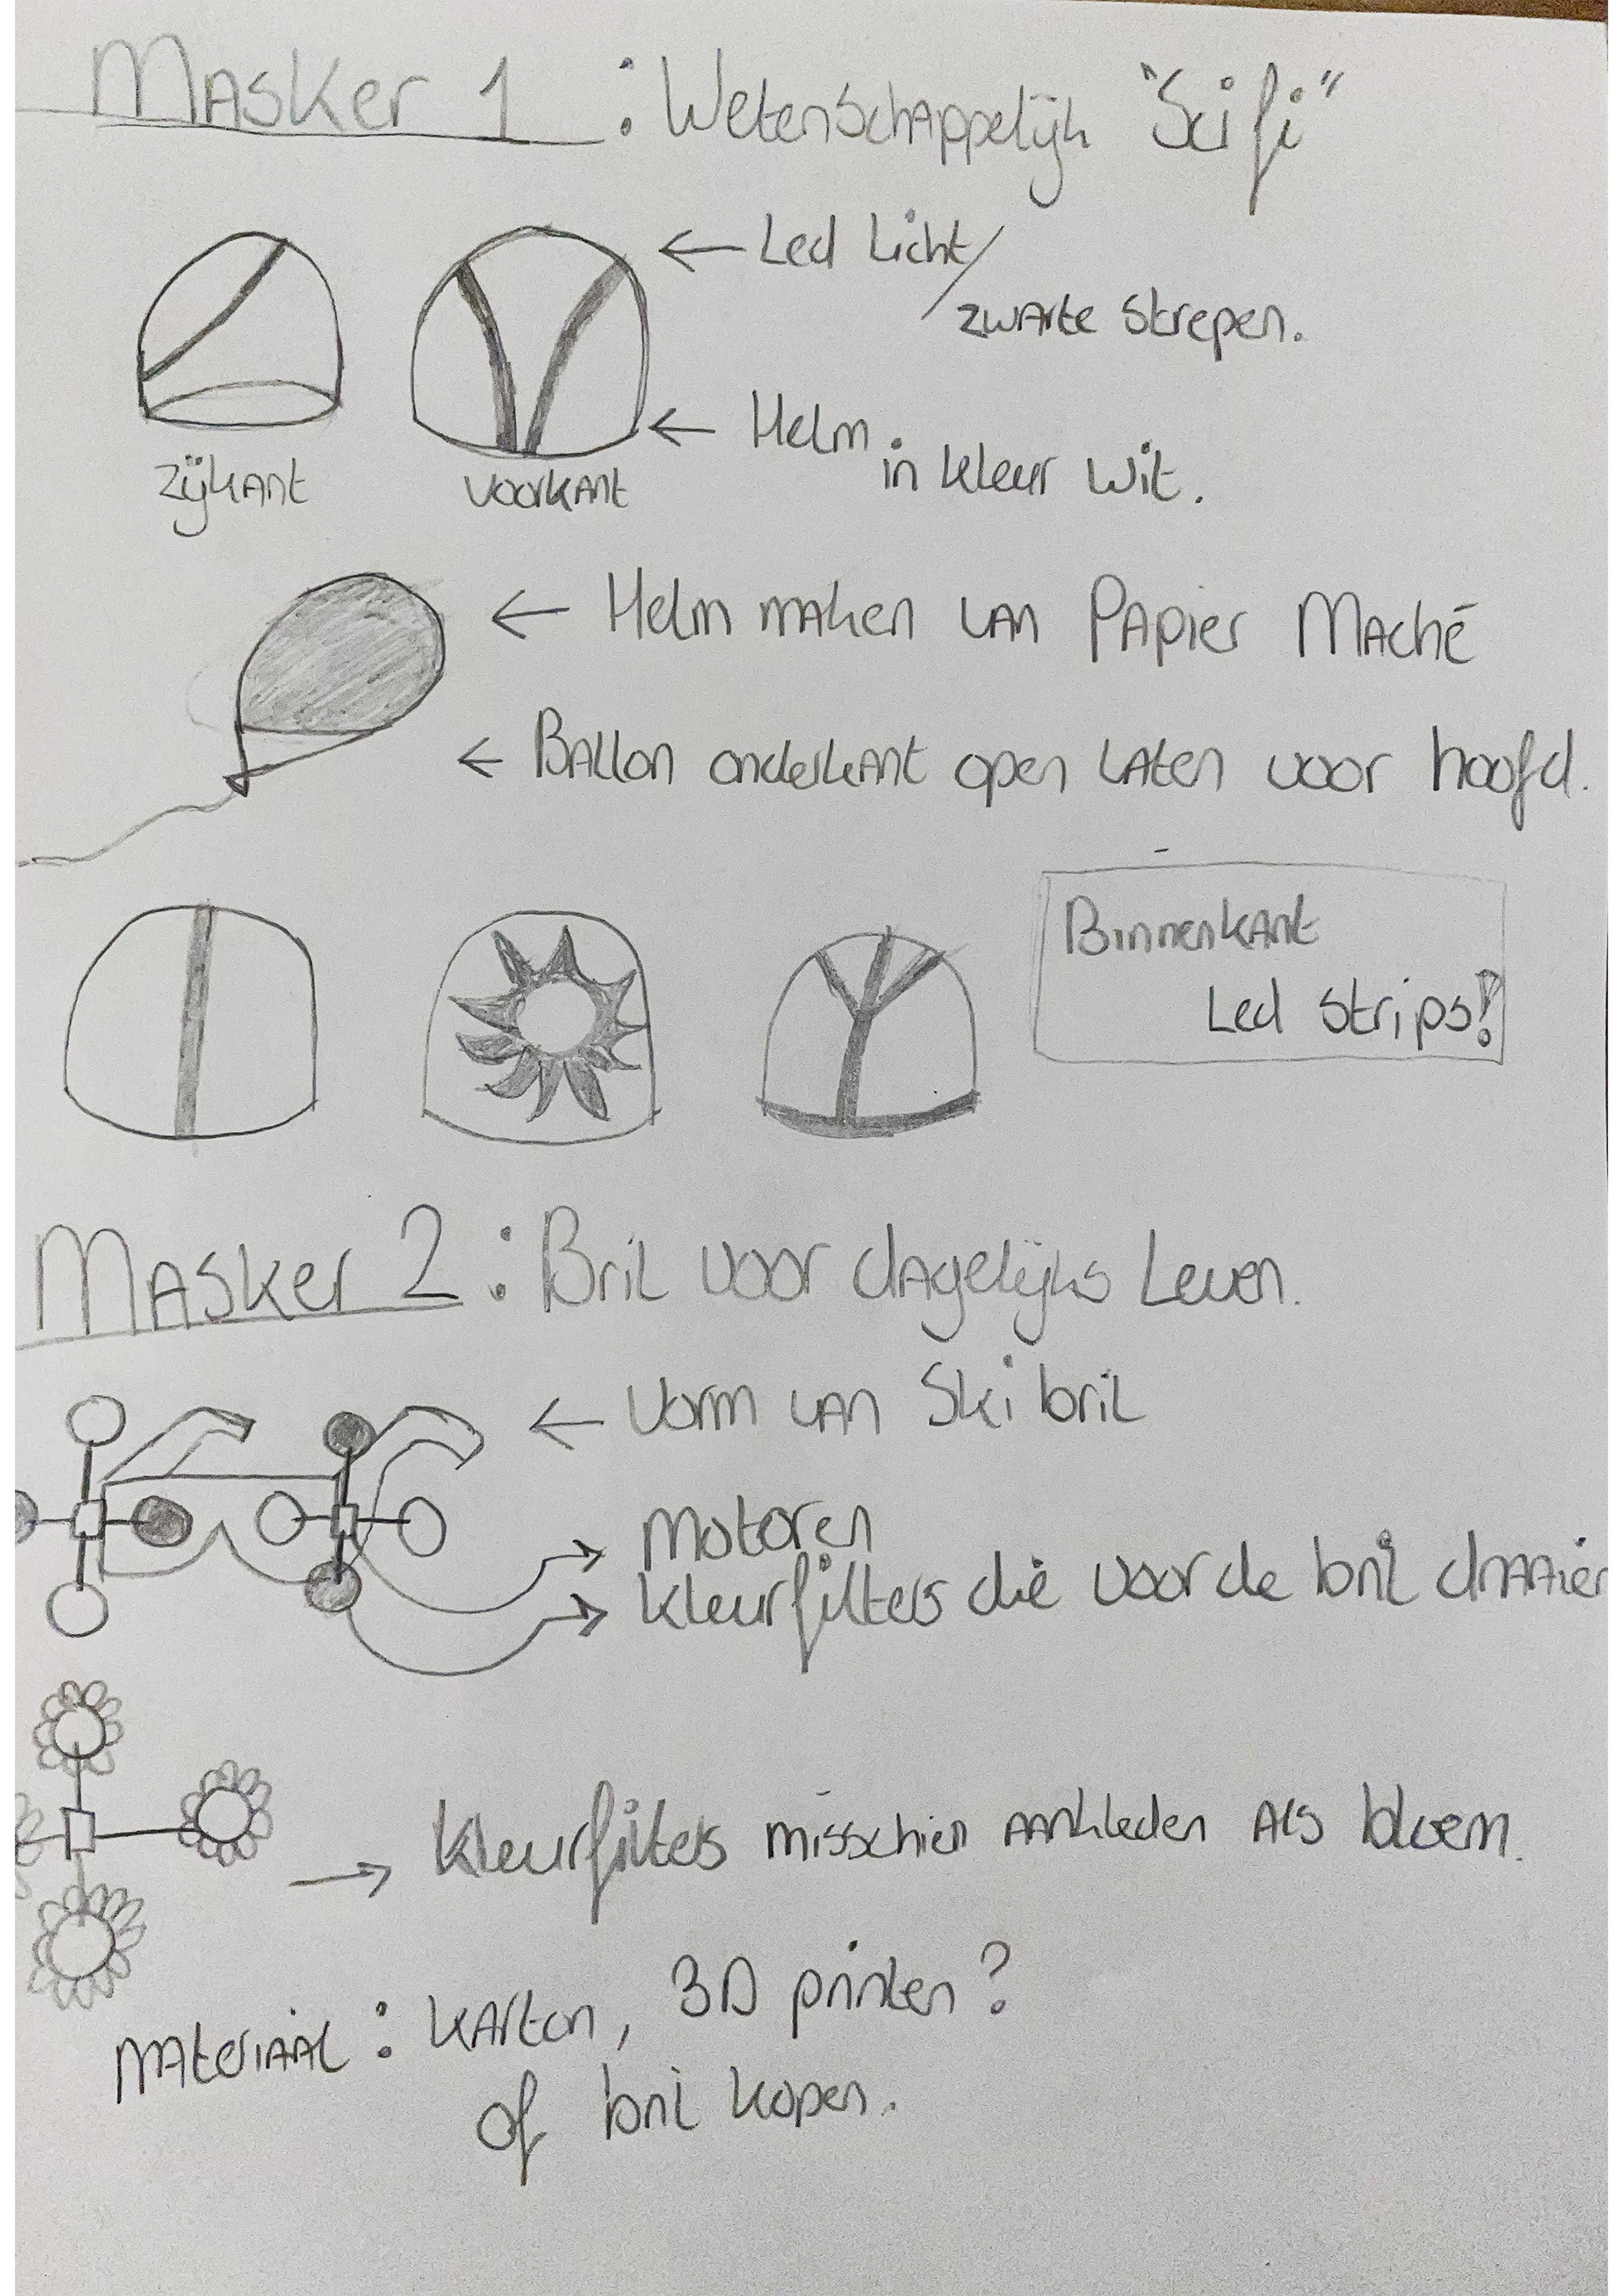 Masker 1 : Wetenschappelijk "Scifi"
← Led Licht/
zwarte strepen.
← Helm in kleur wit.
zijkant voorkant
← Helm maken van Papier Maché
← Ballon onderkant open laten voor hoofd.
Binnenkant
Led strips!
Masker 2 : Bril voor dagelijks Leven.
← Vorm van Ski bril
→ Motoren
→ kleurfilters die voor de bril draaien
→ kleurfilters misschien aankleden als bloem.
Materiaal : karton, 3D printen?
of bril kopen.